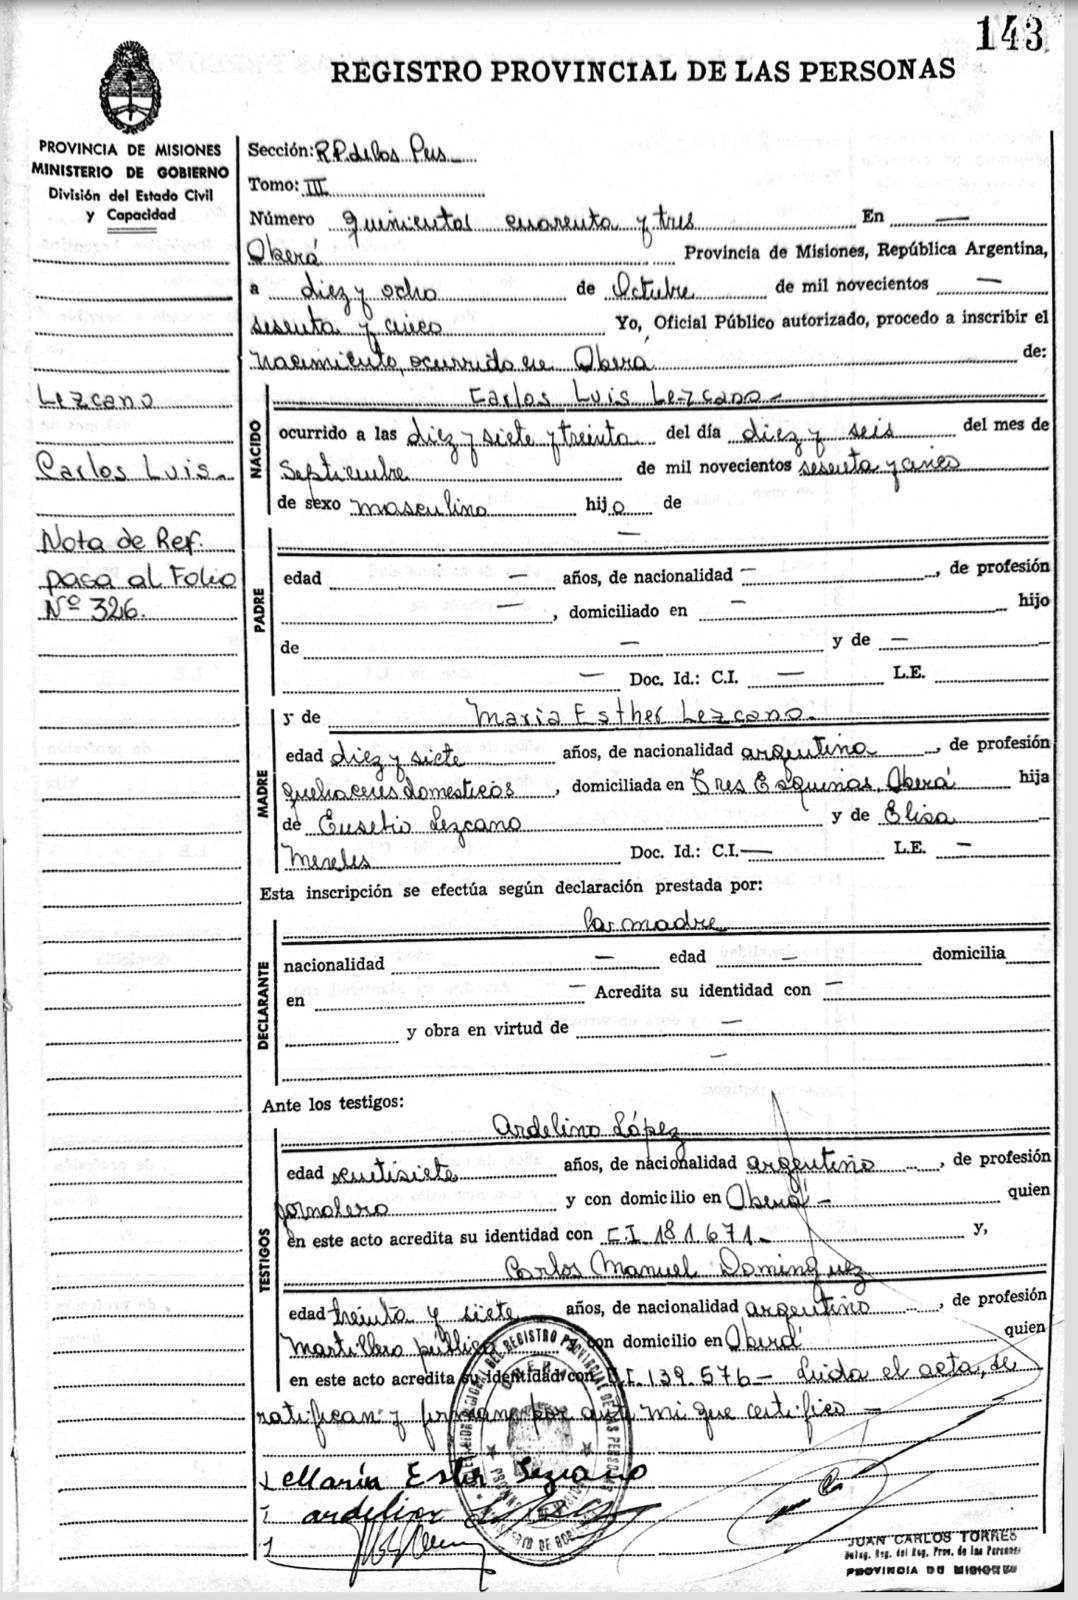 143
REGISTRO PROVINCIAL DE LAS PERSONAS
PROVINCIA DE MISIONES
MINISTERIO DE GOBIERNO
División del Estado Civil
y Capacidad
Lezcano
Carlos Luis.
Nota de Ref.
pasa al Folio
Nº 326.
Sección: R.P. de las Pers
Tomo: III
Número quinientos cuarenta y tres En —
Oberá Provincia de Misiones, República Argentina,
a diez y ocho de Octubre de mil novecientos —
sesenta y cinco Yo, Oficial Público autorizado, procedo a inscribir el
nacimiento, ocurrido en Oberá de:
NACIDO
Carlos Luis Lezcano.-
ocurrido a las diez y siete y treinta del día diez y seis del mes de
Septiembre de mil novecientos sesenta y cinco
de sexo masculino hijo de
PADRE
—
edad — años, de nacionalidad —, de profesión
—, domiciliado en — hijo
de — y de —
— Doc. Id.: C.I. — L.E.
MADRE
y de Maria Esther Lezcano.
edad diez y siete años, de nacionalidad argentina, de profesión
quehaceres domesticos, domiciliada en Tres Esquinas, Oberá hija
de Eusebio Lezcano y de Elisa
Mereles Doc. Id.: C.I. — L.E. —
Esta inscripción se efectúa según declaración prestada por:
DECLARANTE
la madre
nacionalidad — edad — domicilia
en — Acredita su identidad con —
y obra en virtud de —
—
Ante los testigos:
TESTIGOS
Ardelino López
edad veintisiete años, de nacionalidad argentino, de profesión
jornalero y con domicilio en Oberá - quien
en este acto acredita su identidad con C.I. 181.671.- y,
Carlos Manuel Dominguez
edad treinta y siete años, de nacionalidad argentino, de profesión
Martillero público y con domicilio en Oberá quien
en este acto acredita su identidad con C.I. 139.576 - Leída el acta, se
ratifican y firman por ante mi que certifico -
Maria Ester Lezcano
ardelino
JUAN CARLOS TORRES
Deleg. Reg. del Reg. Prov. de las Personas
PROVINCIA DE MISIONES